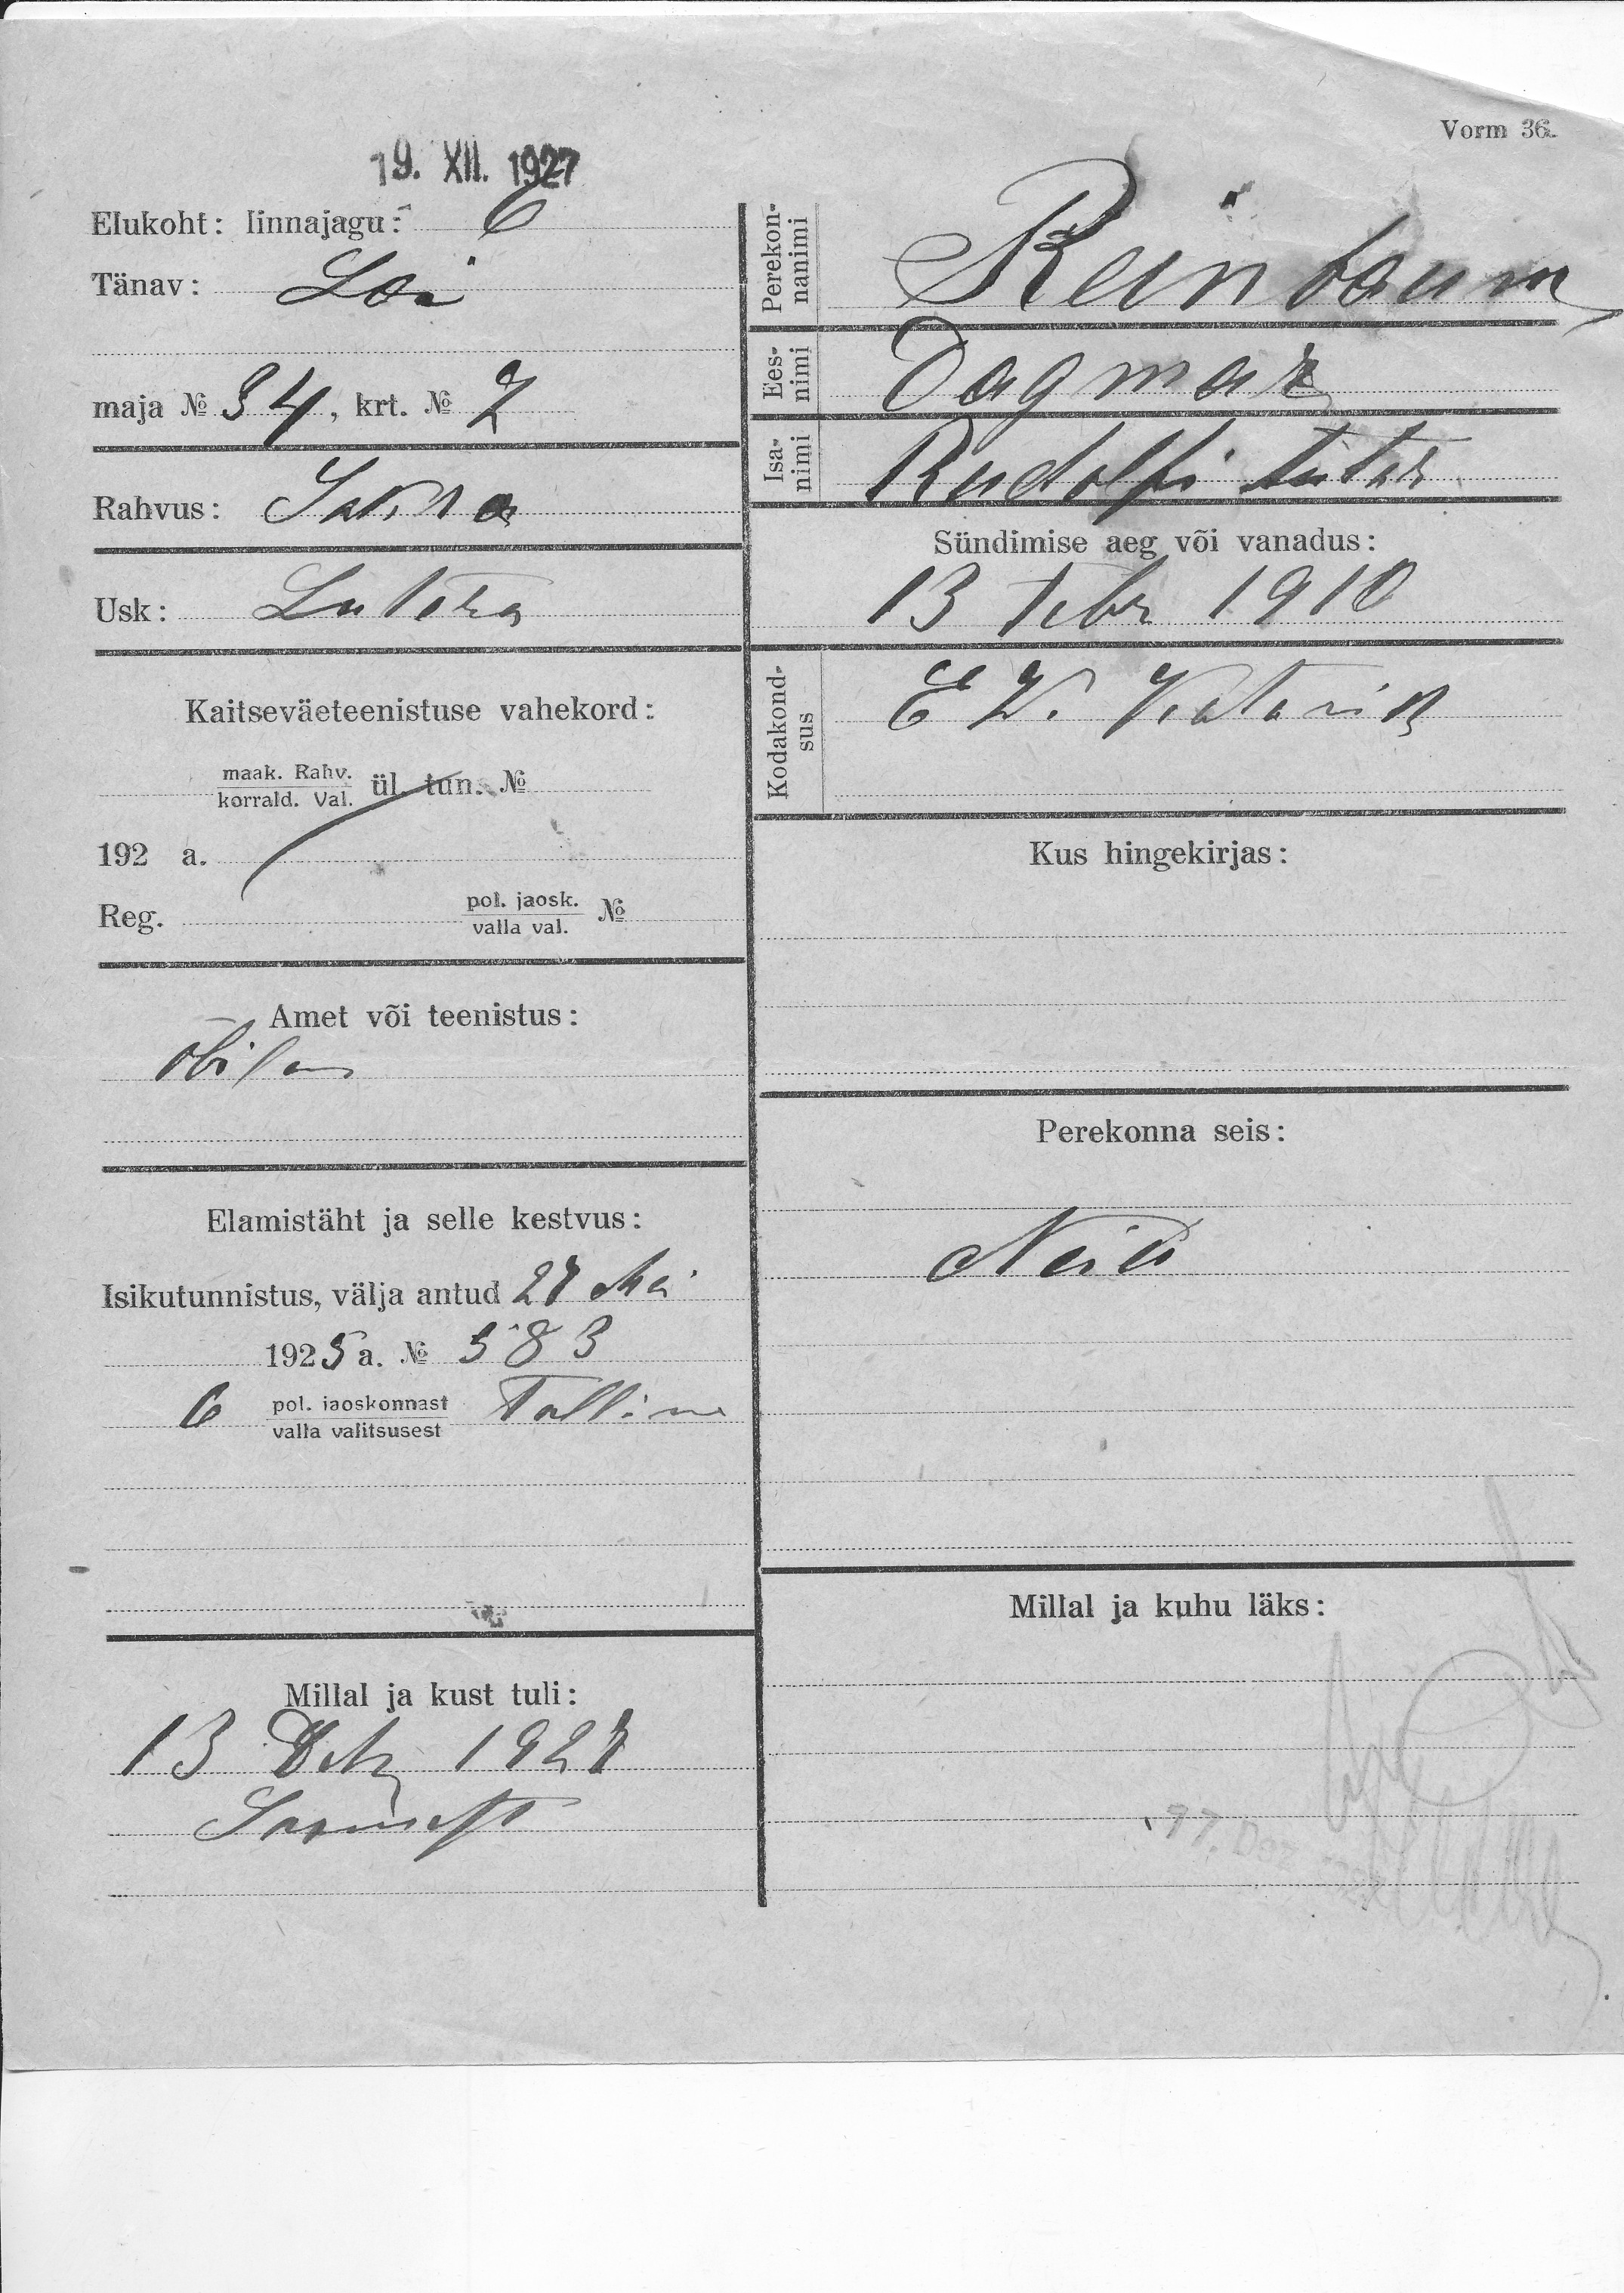 Vorm 36.
19. XII. 1927
Elukoht: linnajagu: 6
Tänav: Lai
maja № 34, krt. № 2
Rahvus: Saksa
Usk: Lutera
Kaitseväeteenistuse vahekord:
maak. Rahv.
korrald. Val. ül. tun. №
192 a.
Reg. pol. jaosk.
valla val. №
Amet või teenistus:
õpilane
Elamistäht ja selle kestvus:
Isikutunnistus, välja antud 27 Mai
1925 a. № 583
6 pol. jaoskonnast
valla valitsusest Tallinn
Millal ja kust tuli:
13 Dets 1927
Perekon-
nanimi
Reinbaum
Ees-
nimi
Dagmar
Isa-
nimi
Rudolfi tütar
Sündimise aeg või vanadus:
13 Febr 1910
Kodakond-
sus
E W.
Kus hingekirjas:
Perekonna seis:
Neid
Millal ja kuhu läks: